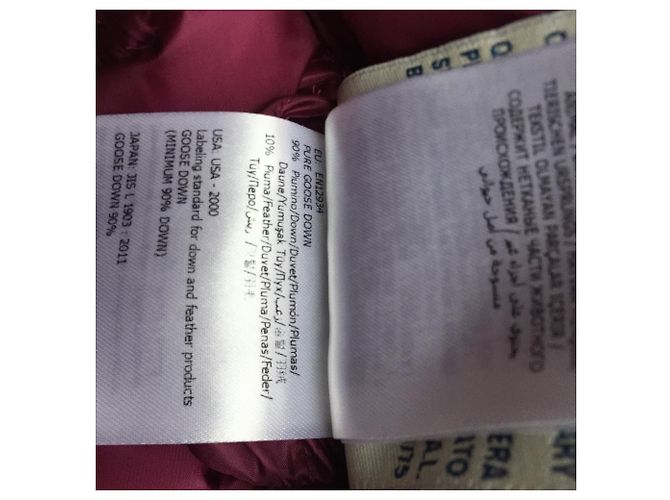 EU EN12934
PURE GOOSE DOWN
90% Plumino/Down/Duvet/Plumón/Plumas/
Daune/Yumuşak Tüy/Пух/
10% Piuma/Feather/Duvet/Pluma/Penas/Feder/
Tüy/Перо/ريش/
USA: USA - 2000
Labeling standard for down and feather products
GOOSE DOWN
(MINIMUM 90% DOWN)
JAPAN JIS L 1903 : 2011
GOOSE DOWN 90%
TIERISCHEN URSPRUNGS /
TEKSTİL OLMAYAN PARÇALAR İÇERİR /
СОДЕРЖИТ НЕТКАНЫЕ ЧАСТИ ЖИВОТНОГО
ПРОИСХОЖДЕНИЯ /
يحتوي على أجزاء غير
منسوجة من أصل حيواني